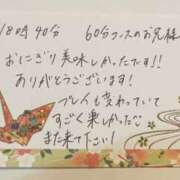 18時40分
60分コースのお兄様
おにぎり美味しかったです!!
ありがとうございます!
プレイも変わっていて
すごく楽しかったな
また来て下さい!